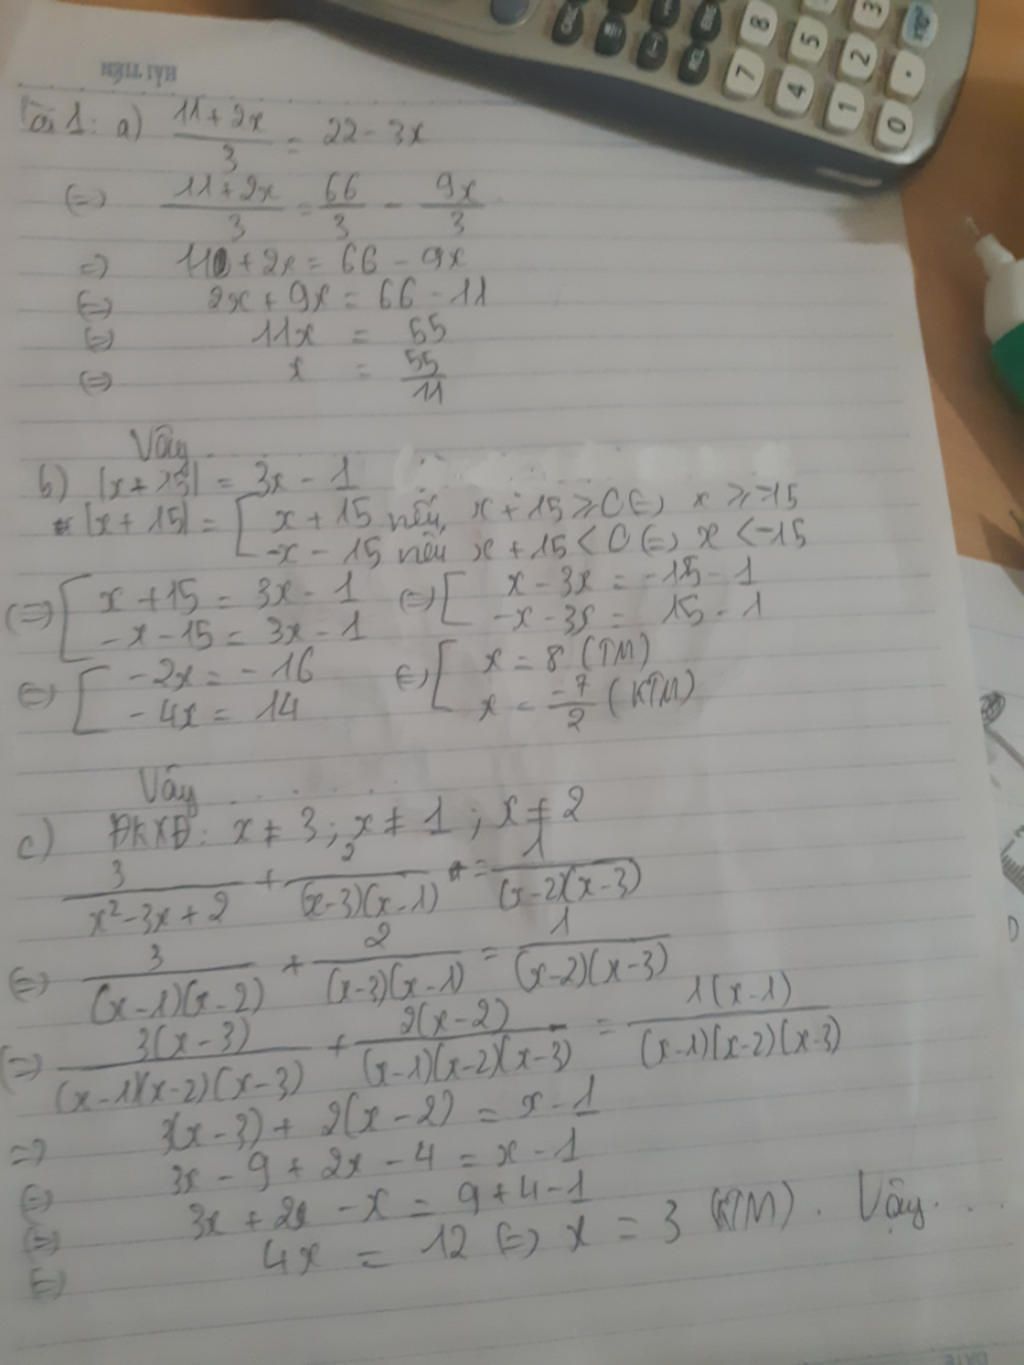 HẢI TIẾN
Bài 1: a) (11+2x)/3 = 22 - 3x
(=) (11+2x)/3 = 66/3 - 9x/3
=) 11 + 2x = 66 - 9x
(=) 2x + 9x = 66 - 11
(=) 11x = 55
(=) x = 55/11
Vậy
b) |x + 15| = 3x - 1
|x + 15| = [ x + 15 nếu x + 15 ≥ 0 (=) x ≥ -15
-x - 15 nếu x + 15 < 0 (=) x < -15
(=) [ x + 15 = 3x - 1 (=) [ x - 3x = -15 - 1
-x - 15 = 3x - 1 -x - 3x = 15 - 1
(=) [ -2x = -16 (=) [ x = 8 (TM)
-4x = 14 x = -7/2 (KTM)
Vậy . . . . .
c) ĐKXĐ: x ≠ 3 ; x ≠ 1 ; x ≠ 2
3/(x² - 3x + 2) + 2/((x-3)(x-1)) = 1/((x-2)(x-3))
(=) 3/((x-1)(x-2)) + 2/((x-3)(x-1)) = 1/((x-2)(x-3))
(=) 3(x-3)/((x-1)(x-2)(x-3)) + 2(x-2)/((x-1)(x-2)(x-3)) = 1(x-1)/((x-1)(x-2)(x-3))
=) 3(x-3) + 2(x-2) = x - 1
(=) 3x - 9 + 2x - 4 = x - 1
(=) 3x + 2x - x = 9 + 4 - 1
(=) 4x = 12 (=) x = 3 (KTM). Vậy . . .